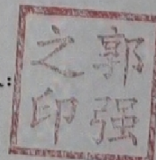 郭强
之印